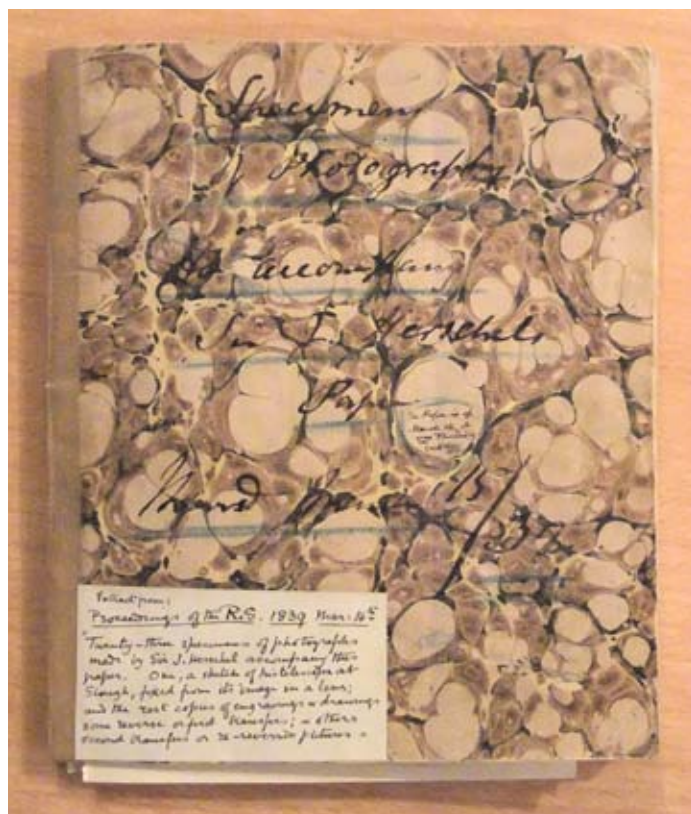 Specimens
Photography
to accompany
Sir J. Herschels
Paper
Extract from:
Proceedings of the R.S. 1839 Mar: 14th
"Twenty-three specimens of photographs
made by Sir J. Herschel accompany this
paper. One, a sketch of his telescope at
Slough, fixed from its image in a lens;
and the rest copies of engravings & drawings
some reverse or first transfers; & others
second transfers or re-reversed pictures"